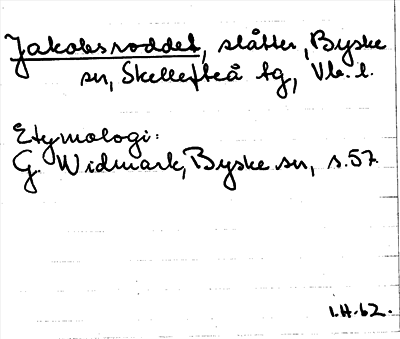 Jakobsroddet, slåtter, Byske
sn, Skellefteå tg, Vb. l.
Etymologi:
G. Widmark, Byske sn, s. 57.
I.H. 62.